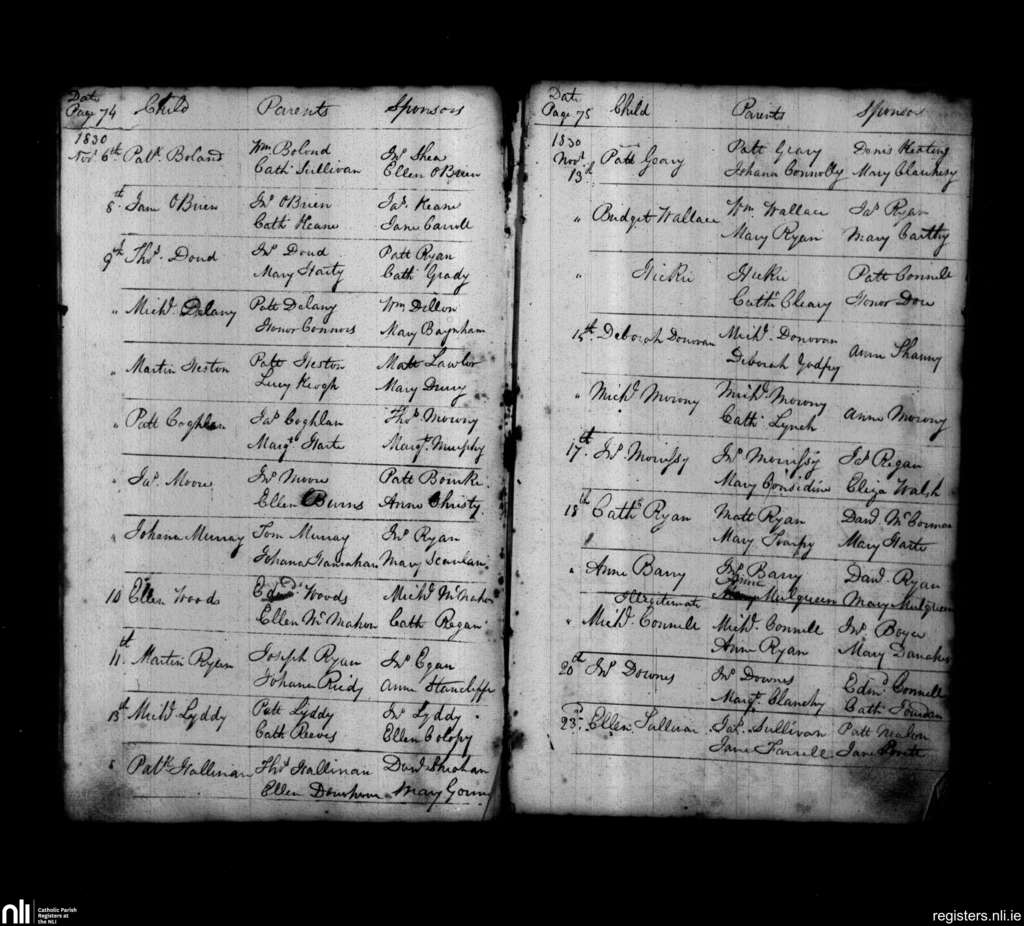 Date
Page 74 Child Parents Sponsors
1830
Novr. 6th Patk. Boland Wm Bolond Jno. Shea
Cath: Sullivan Ellen OBrien
8th Jane OBrien Jno. OBrien Jas. Keane
Cath Keane Jane Carroll
9th Thos. Doud Jno. Doud Patt Ryan
Mary Harty Cath: Grady
" Michl. Delany Patt Delany Wm. Dillon
Honor Connors Mary Baynham
" Martin Heston Patt Heston Matt Lawlor
Lucy Keogh Mary Drury
" Patt Coghlan Jas. Coghlan Thos. Morony
Margt. Harte Margt. Murphy
" Jas. Moore Jno. Moore Patt Bourke
Ellen Burns Anne Christy
" Johana Murray Tom Murray Jno. Ryan
Johana Hanrahan Mary Scanlan
10 Ellen Woods Edmd. Woods Michl. McMahon
Ellen McMahon Cath Regan
11th Martin Ryan Joseph Ryan Jno. Egan
Johana Reidy Anne Stancliffe
13th Michl. Lyddy Patt Lyddy Jno. Lyddy
Cath Reeves Ellen Colopy
" Patk. Hallinan Thos. Hallinan Danl. Sheehan
Ellen Mary
Date
Page 75 Child Parents Sponsor
1830
Novr. 13d Patt Geary Patt Geary Denis Keating
Johana Connolly Mary
" Bridget Wallace Wm. Wallace Jas. Ryan
Mary Ryan Mary Carthy
" Hickie Hickie Patt Connell
Cath: Cleary Honor
15th Deborah Donovan Michl. Donovan Anne Shanny
Deborah Godfry
" Michl. Morony Michl. Morony Anne Morony
Cath: Lynch
17th Jno. Morrissy Jno. Morrissy Jas. Regan
Mary Considine Eliza Walsh
18th Cath: Ryan Matt Ryan Danl. McCormac
Mary Mary Harte
" Anne Barry Jno. Barry Danl. Ryan
Anne
Mary Mulqueen Mary Mulqueen
Illegitimate
" Michl. Connell Michl. Connell Jno. Boyce
Anne Ryan Mary Danaher
20th Jno. Downes Jno. Downes Edmd. Connell
Margt. Clanchy Cath:
23d. Ellen Sullivan Jas. Sullivan Patt
Jane Farrell Jane
nli Catholic Parish
Registers at
the NLI
registers.nli.ie